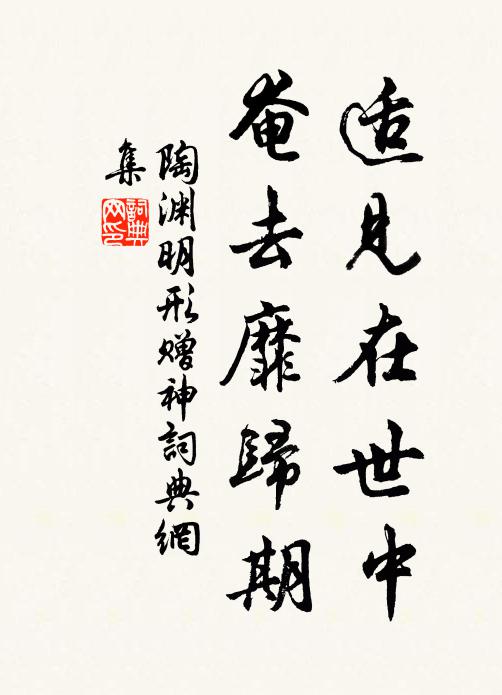 适見在世中
奄去靡歸期
陶淵明形赠神詞典網
集
詞典
网印